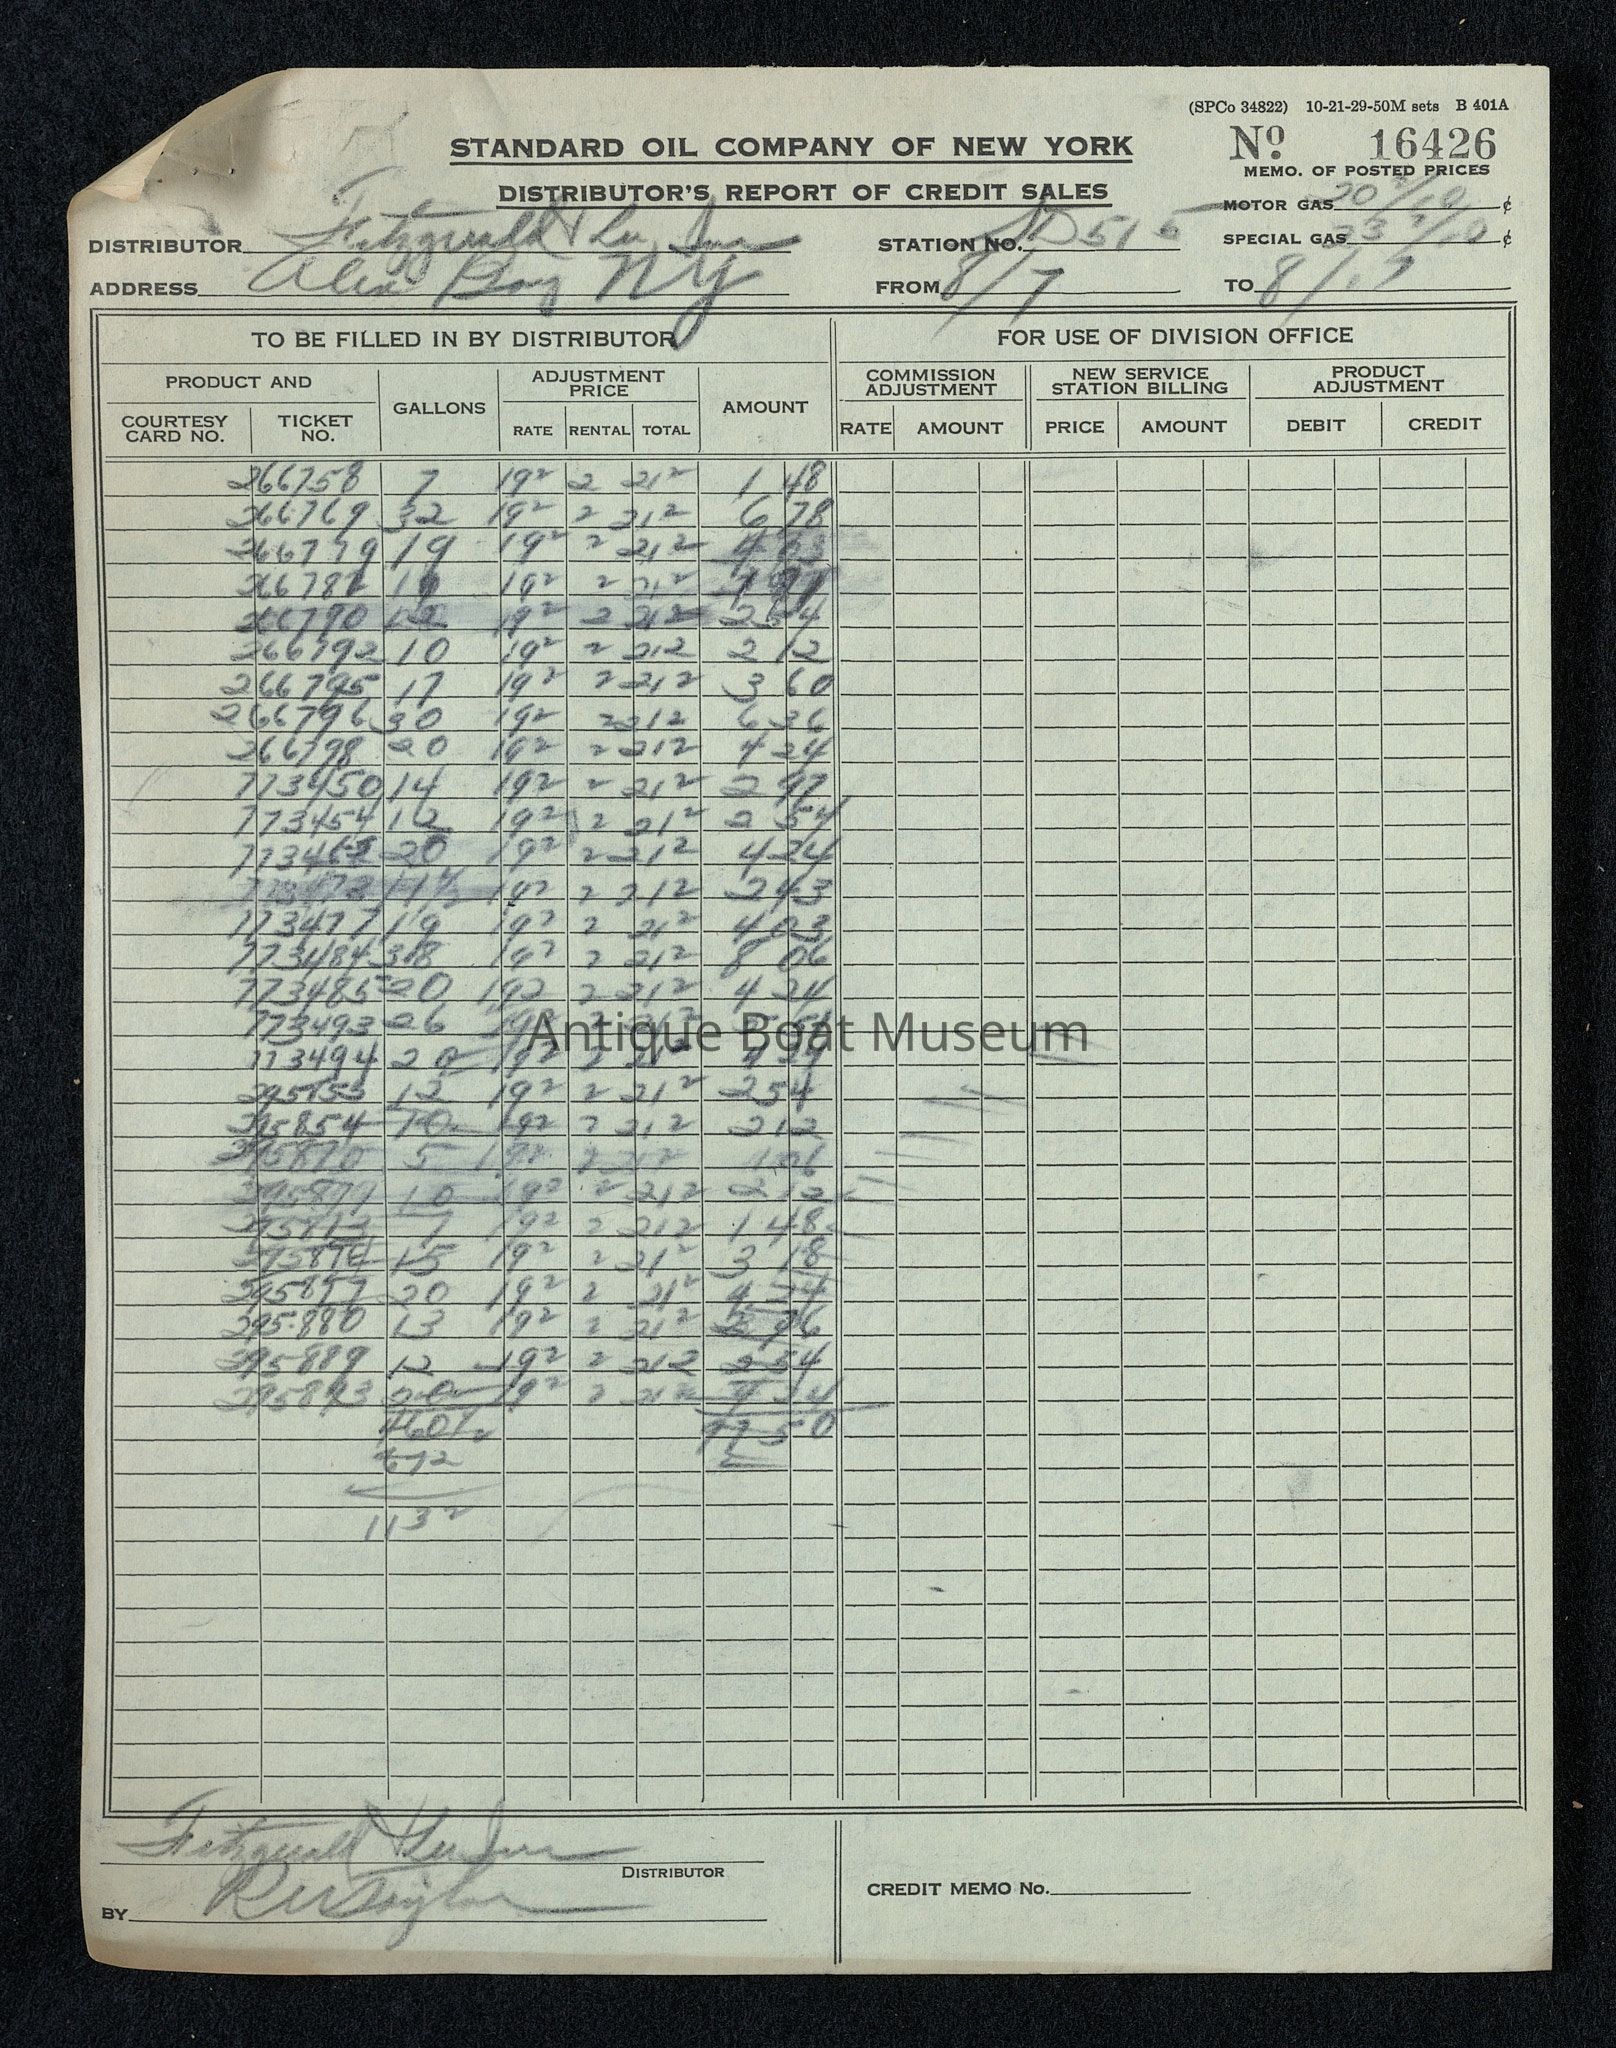 (SPCo 34822) 10-21-29-50M sets B 401A
STANDARD OIL COMPANY OF NEW YORK
No. 16426
DISTRIBUTOR'S REPORT OF CREDIT SALES
MEMO. OF POSTED PRICES
MOTOR GAS 20 2/10 ¢
DISTRIBUTOR Fitzgerald & Lee, Inc
STATION NO. SD 515
SPECIAL GAS 23 2/10 ¢
ADDRESS Alex Bay NY
FROM 8/7
TO 8/
TO BE FILLED IN BY DISTRIBUTOR
FOR USE OF DIVISION OFFICE
PRODUCT AND
COURTESY CARD NO.
TICKET NO.
GALLONS
ADJUSTMENT PRICE
RATE RENTAL TOTAL
AMOUNT
COMMISSION ADJUSTMENT
RATE AMOUNT
NEW SERVICE STATION BILLING
PRICE AMOUNT
PRODUCT ADJUSTMENT
DEBIT CREDIT
266758 7 19² 2 21² 1 48
266769 32 19² 2 21² 6 78
266779 19 19² 2 21² 4 03
266782 19² 2 21²
266790 12 19² 2 21² 2 54
266792 10 19² 2 212 2 12
266795 17 19² 2 21² 3 60
266796 30 19² 2 212 6 36
266798 20 19² 2 212 4 24
773450 14 19² 2 21² 2 97
773454 12 19² 2 21² 2 54
773462 20 19² 2 21² 4 24
773472 11½ 19² 2 21² 2 43
773477 19 19² 2 21² 4 03
773484 38 19² 2 21² 8 06
773485 20 192 2 21² 4 24
773493 26 19² 2 21²
773494 20 19² 2 21² 4 24
12 19² 2 21² 2 54
295854 10 19² 2 21² 2 12
295870 5 19² 2 21² 1 06
10 19² 2 212 2 12
295873 7 19² 2 212 1 48
295876 15 19² 2 21² 3 18
295877 20 19² 2 21² 4 24
295880 13 19² 2 21² 2 76
295889 12 19² 2 212 2 54
295893 20 19² 2 21² 4 24
460½ 97 50
672
113²
Antique Boat Museum
Fitzgerald & Lee Inc
DISTRIBUTOR
CREDIT MEMO No.
BY Taylor